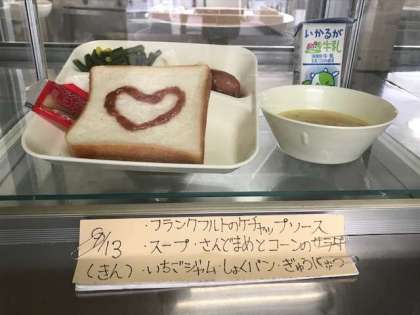 いかるが
牛乳
9/13
・フランクフルトのケチャップソース
・スープ・さんどまめとコーンのサラダ
(きん)・いちごジャム・しょくパン・ぎゅうにゅう